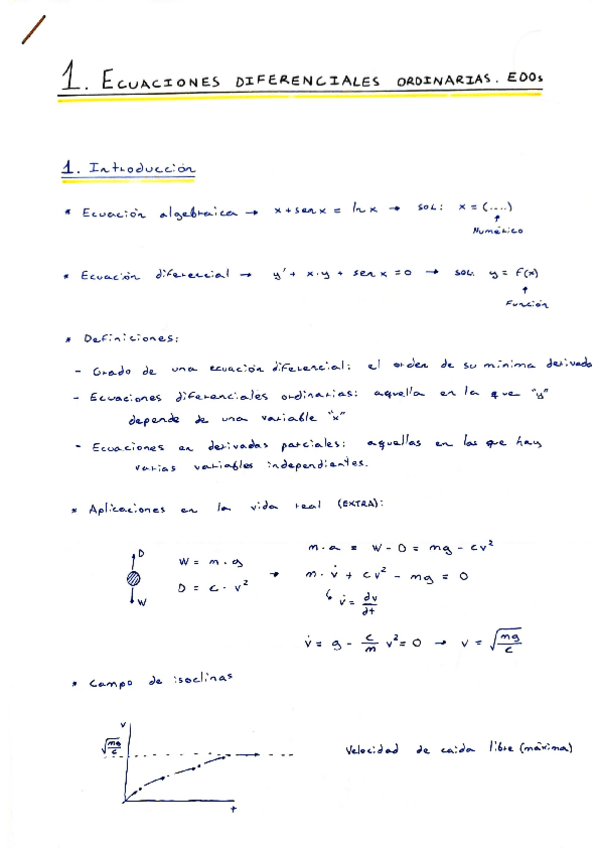 1. ECUACIONES DIFERENCIALES ORDINARIAS. EDOs
1. Introducción
* Ecuación algebraica → x + sen x = ln x → sol: x = (....)
↑
Numérico
* Ecuación diferencial → y' + x·y + sen x = 0 → sol. y = F(x)
↑
Función
* Definiciones:
- Grado de una ecuación diferencial: el orden de su mínima derivada
- Ecuaciones diferenciales ordinarias: aquella en la que "y"
depende de una variable "x"
- Ecuaciones en derivadas parciales: aquellas en las que hay
varias variables independientes.
* Aplicaciones en la vida real (EXTRA):
D
W
W = m·g
D = c·v²
→
m·a = W - D = mg - cv²
m·v̇ + cv² - mg = 0
v̇ = dv/dt
v̇ = g - c/m v² = 0 → v = √(mg/c)
* Campo de isoclinas
v
√(mg/c)
t
Velocidad de caída libre (máxima)